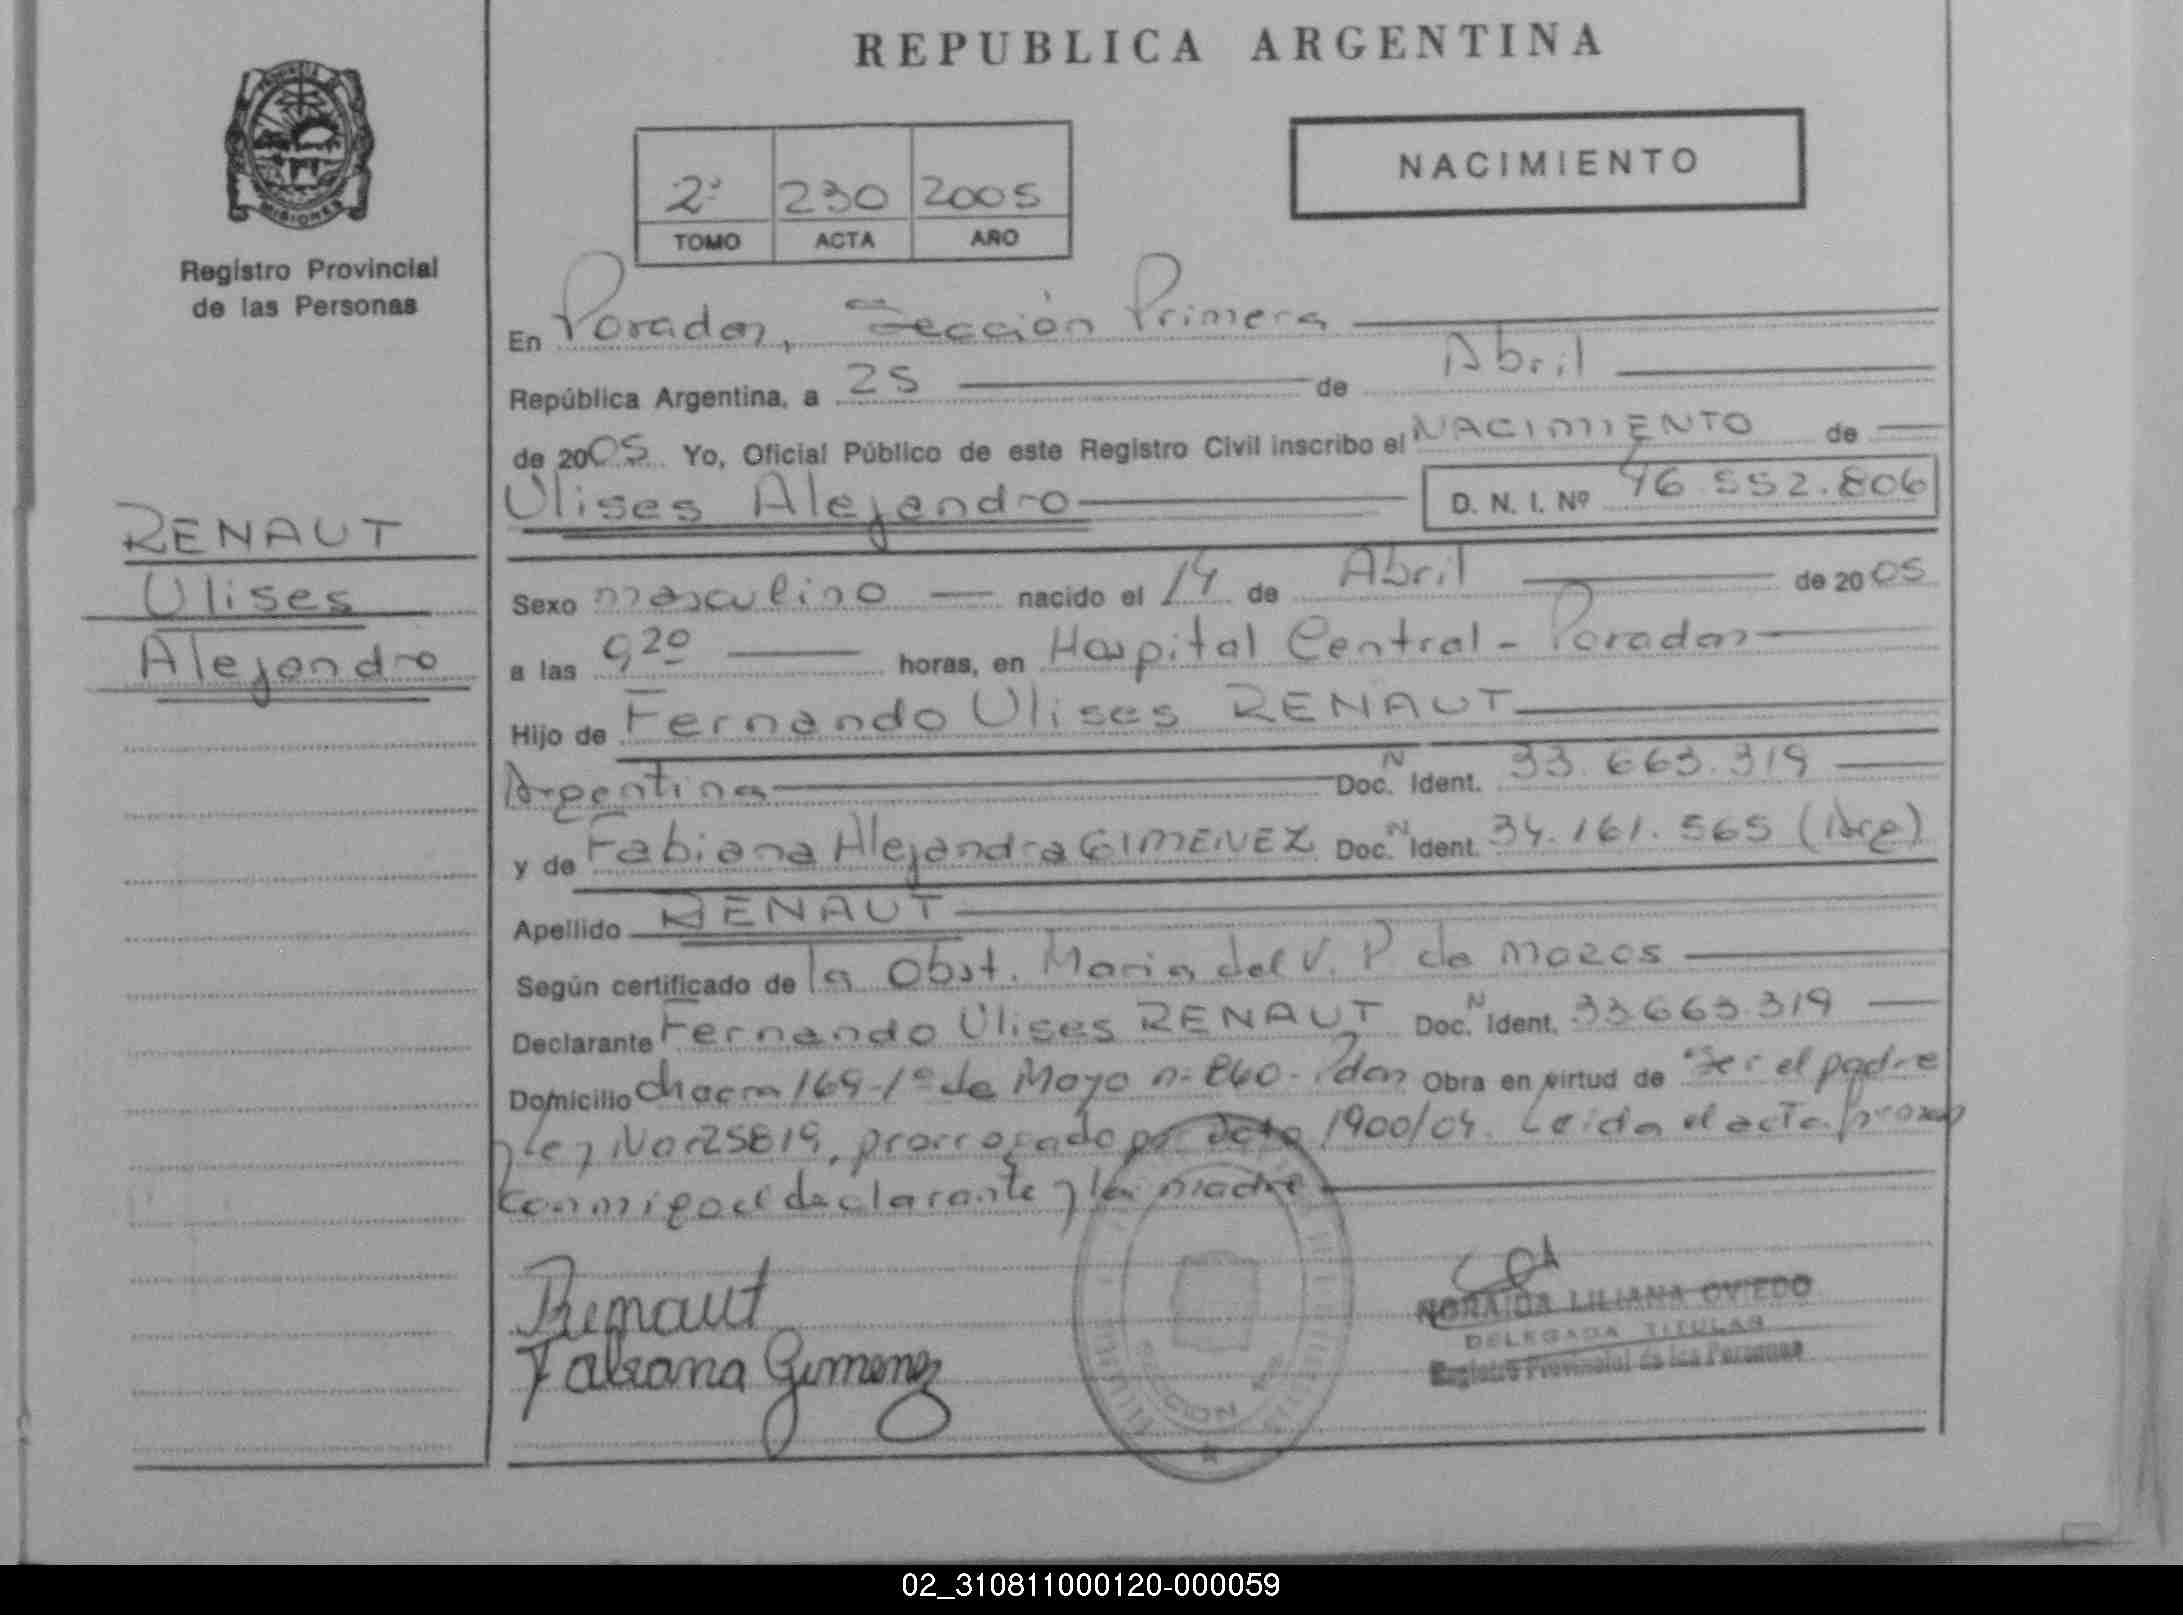 REPUBLICA ARGENTINA
PROVINCIA DE
MISIONES
Registro Provincial
de las Personas
2º 230 2005
TOMO ACTA AÑO
NACIMIENTO
En Posadas, Sección Primera
República Argentina, a 25 de Abril
de 2005 Yo, Oficial Público de este Registro Civil inscribo el NACIMIENTO de
Ulises Alejandro D. N. I. Nº 46.552.806
RENAUT
Ulises
Alejandro
Sexo masculino nacido el 14 de Abril de 2005
a las 9,20 horas, en Hospital Central - Posadas
Hijo de Fernando Ulises RENAUT
Argentina Doc. N Ident. 33.663.319
y de Fabiana Alejandra GIMENEZ Doc. N Ident. 34.161.565 (Arg)
Apellido RENAUT
Según certificado de la Obst. Maria del V. P. de Mozos
Declarante Fernando Ulises RENAUT Doc. N Ident. 33.663.319
Domicilio chacra 169-1º de Mayo n- 860- Pdas Obra en virtud de Ser el padre
y Ley Nac 25819, prorrogado por Dcto 1900/04. Leida el acta firman
conmigo el declarante y la madre
Renaut
Fabiana Gimenez
NORAIDA LILIANA OVIEDO
DELEGADA TITULAR
Registro Provincial de las Personas
SECCION
02_310811000120-000059